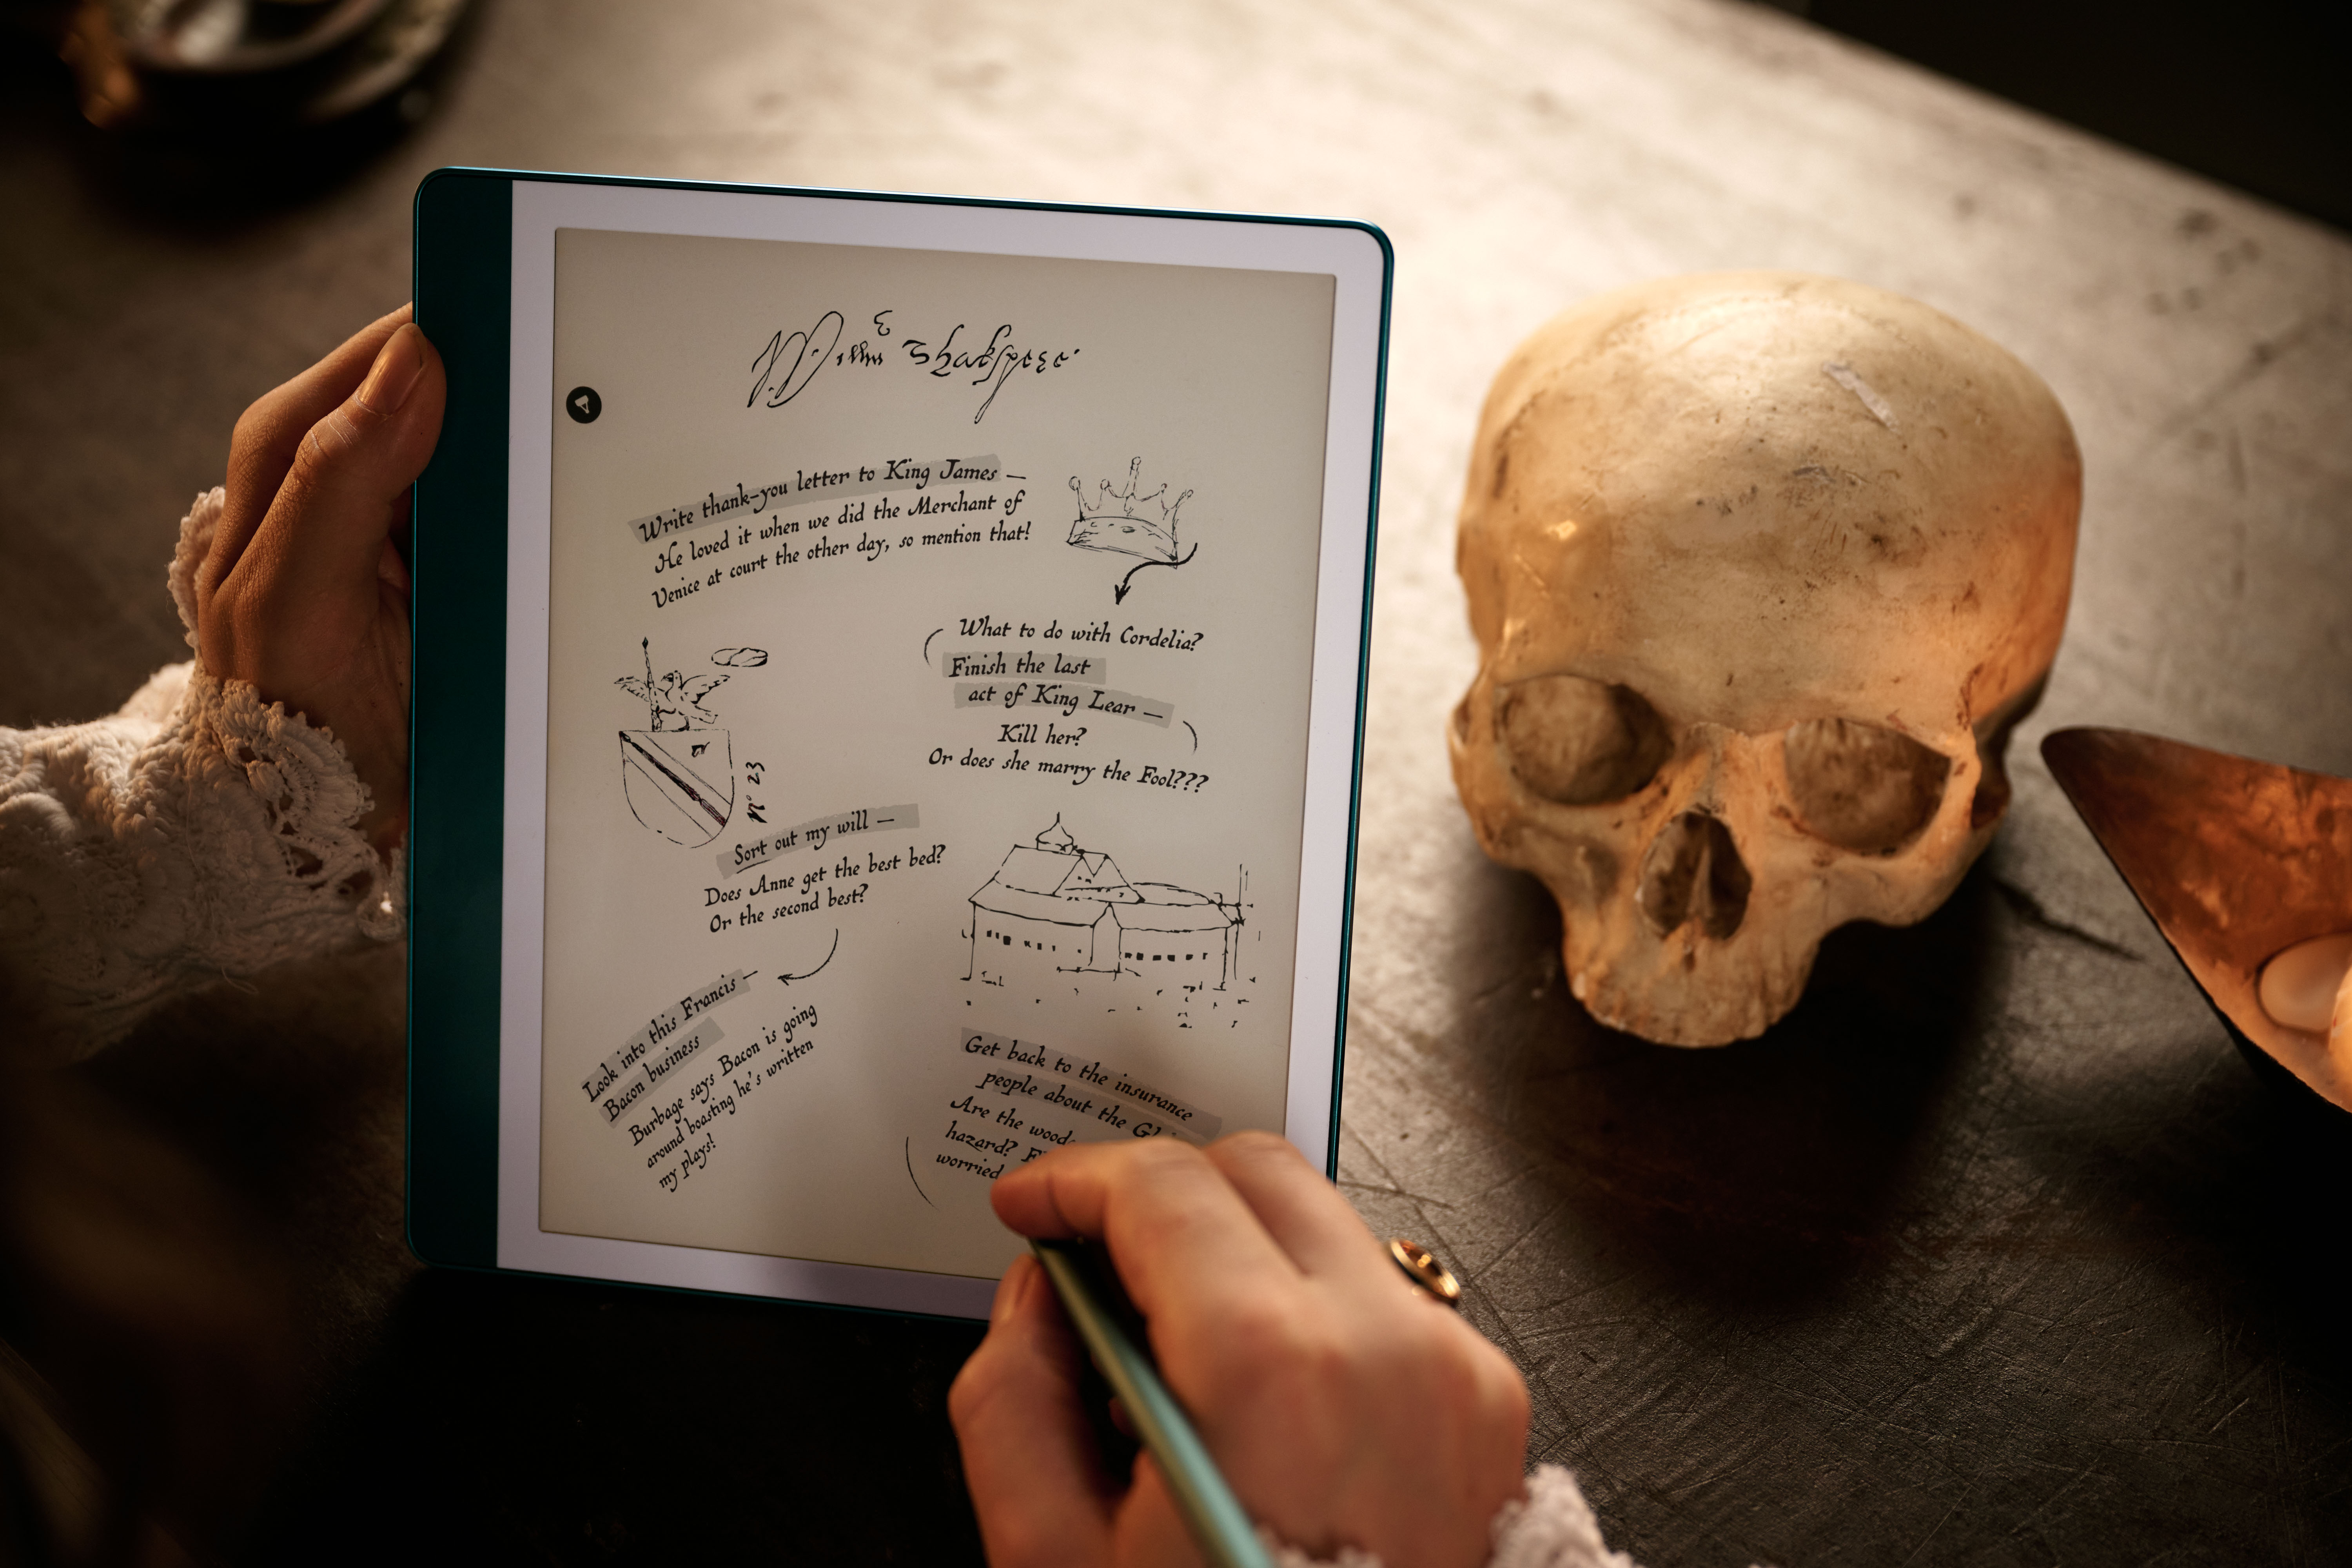 Willm Shakspere
Write thank-you letter to King James —
He loved it when we did the Merchant of
Venice at court the other day, so mention that!
What to do with Cordelia?
Finish the last
act of King Lear —
Kill her?
Or does she marry the Fool???
No 23
Sort out my will —
Does Anne get the best bed?
Or the second best?
Look into this Francis —
Bacon business
Burbage says Bacon is going
around boasting he's written
my plays!
Get back to the insurance
people about the
Are the
hazard?
worried